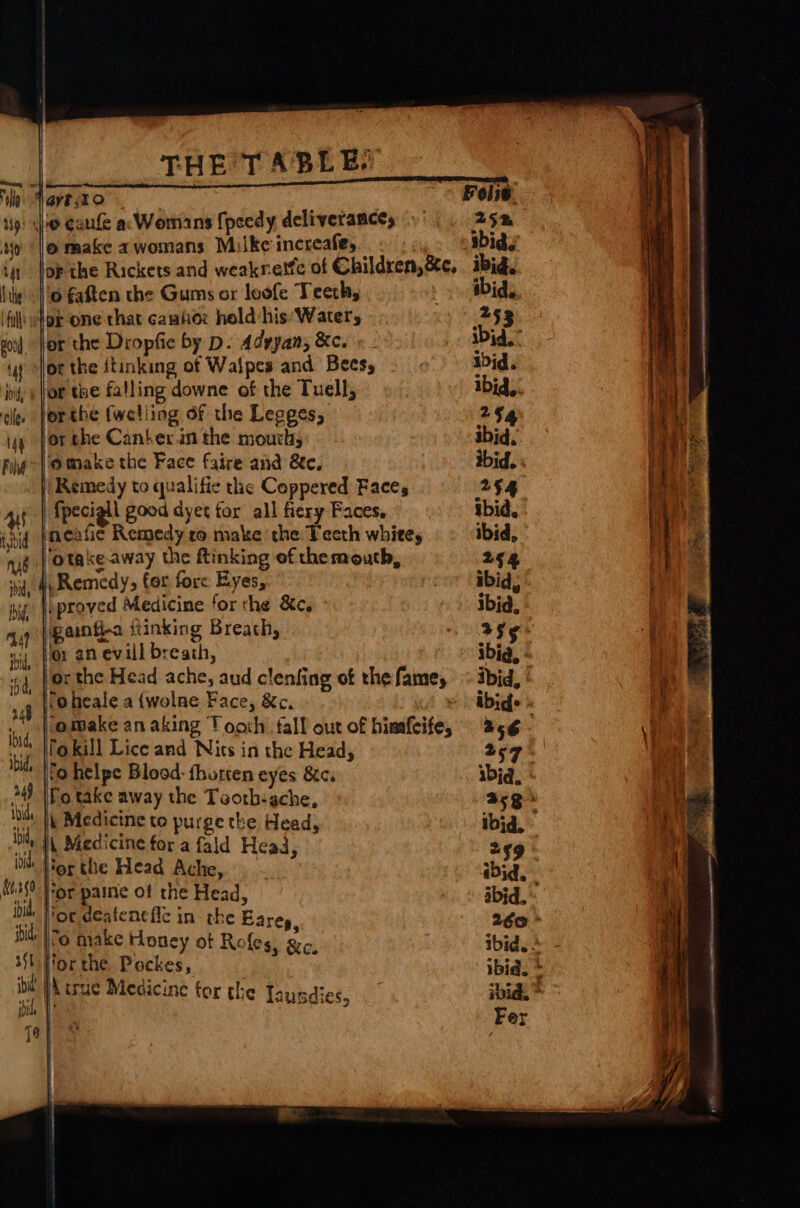 THE TABLE.
Part 10 Folio
o cause a Womans speedy deliverance, 252
o make a womans Milke increase, ibid.
or the Rickets and weaknesse of Children, &c. ibid.
o fasten the Gums or loose Teeth, ibid.
or one that cannot hold his Water, 253
or the Dropsie by D. Adryan, &c. ibid.
or the stinking of Waspes and Bees, ibid.
or the falling downe of the Tuell, ibid.
or the swelling of the Legges, 254
or the Canker in the mouth, ibid.
o make the Face faire and &c. ibid.
Remedy to qualifie the Coppered Face, 254
speciall good dyet for all fiery Faces. ibid.
n easie Remedy to make the Teeth white, ibid,
o take away the stinking of the mouth, 254
Remedy, for sore Eyes, ibid,
pproved Medicine for the &c, ibid,
gainst a stinking Breath, 255
or an evill breath, ibid,
or the Head ache, aud clensing of the same, ibid,
o heale a swolne Face, &c. ibide
o make an aking Tooth fall out of himselfe, 256
To kill Lice and Nits in the Head, 257
To helpe Blood-shotten eyes &c. ibid,
To take away the Tooth-ache, 258
A Medicine to purge the Head, ibid.
A Medicine for a sald Head, 259
For the Head Ache, ibid.
For paine of the Head, ibid.
For deafenesse in the Eares, 260
To make Honey of Roses, &c. ibid.
For the Pockes, ibid.
A true Medicine for the Jaundies, ibid.
For